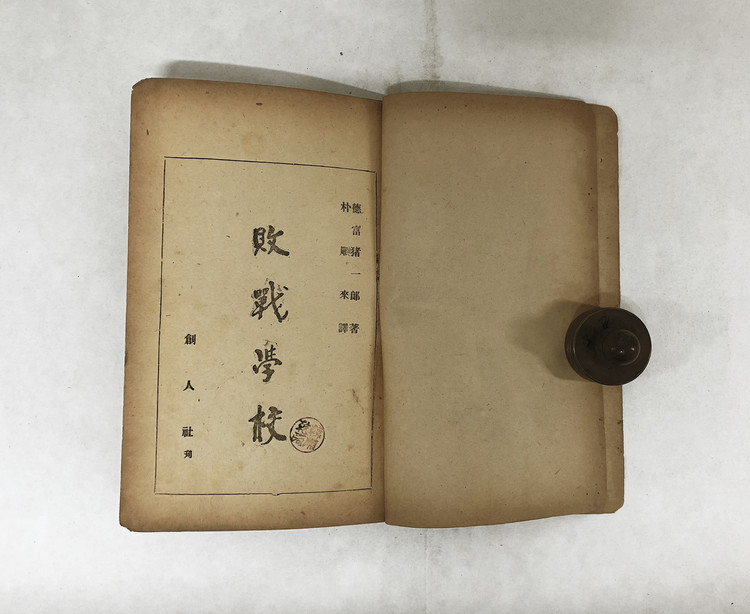 德富猪一郎著
朴順來譯
敗戰學校
創人社刊